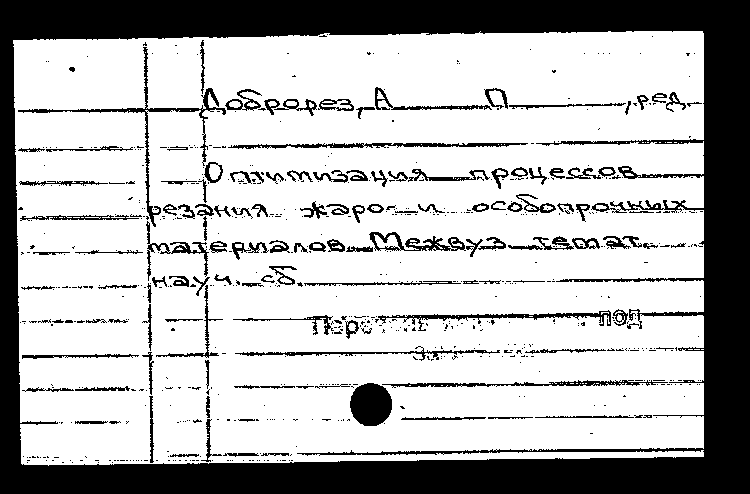 Доброрез, А П , ред.
Оптимизация процессов
резания жаро- и особопрочных
материалов. Межвуз. темат.
науч. сб.
под